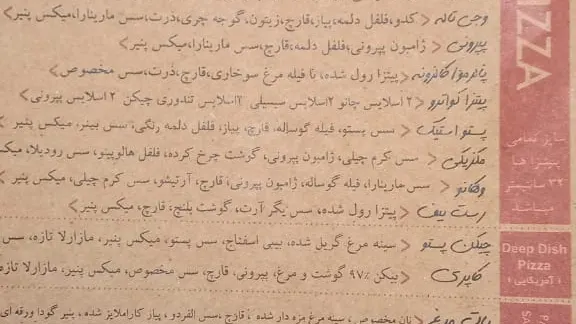 وجی تاله < کدو،فلفل دلمه،پیاز،قارچ،زیتون،گوجه چری،ذرت،سس مارینارا،میکس پنیر>
پپرونی < ژامبون پپرونی،فلفل دلمه،قارچ،سس مارینارا،میکس پنیر>
پالرمو کالزونه < پیتزا رول شده، با فیله مرغ سوخاری،قارچ،ذرت،سس مخصوص>
پیتزا کواترو < ۲ اسلایس چانو ۲اسلایس سیسیلی ۲اسلایس تندوری چیکن ۲ اسلایس پپرونی>
پستو استیک < سس پستو، فیله گوساله، قارچ، پیاز، فلفل دلمه رنگی، سس بینر، میکس پنیر >
مکزیکی < سس کرم چیلی، ژامبون پپرونی، گوشت چرخ کرده، فلفل هالوپینو، سس رودیلا، میکس
ولکانو < سس مارینارا، فیله گوساله، ژامبون پپرونی، قارچ، آرتیشو، سس کرم چیلی، میکس پنیر >
رست بیف < پیتزا رول شده، سس یگر آرت، گوشت بلنچ، قارچ، میکس پنیر >
چیکن پستو < سینه مرغ گریل شده، بیبی اسفناج، سس پستو، میکس پنیر، مازارلا تازه، سس
کاپری < بیکن ۹۷٪ گوشت و مرغ، پپرونی، قارچ، سس مخصوص، میکس پنیر، مازارلا تازه
نان مخصوص ، سینه مرغ مزه دار شده ، قارچ ،سس الفردو ، پیاز کاراملایز شده ، پنیر گودا ورقه ای
PIZZA
سایز تمامی
پیتزا ها
۳۲ سانتیمتر
میباشد
Deep Dish
Pizza
( آمریکایی )